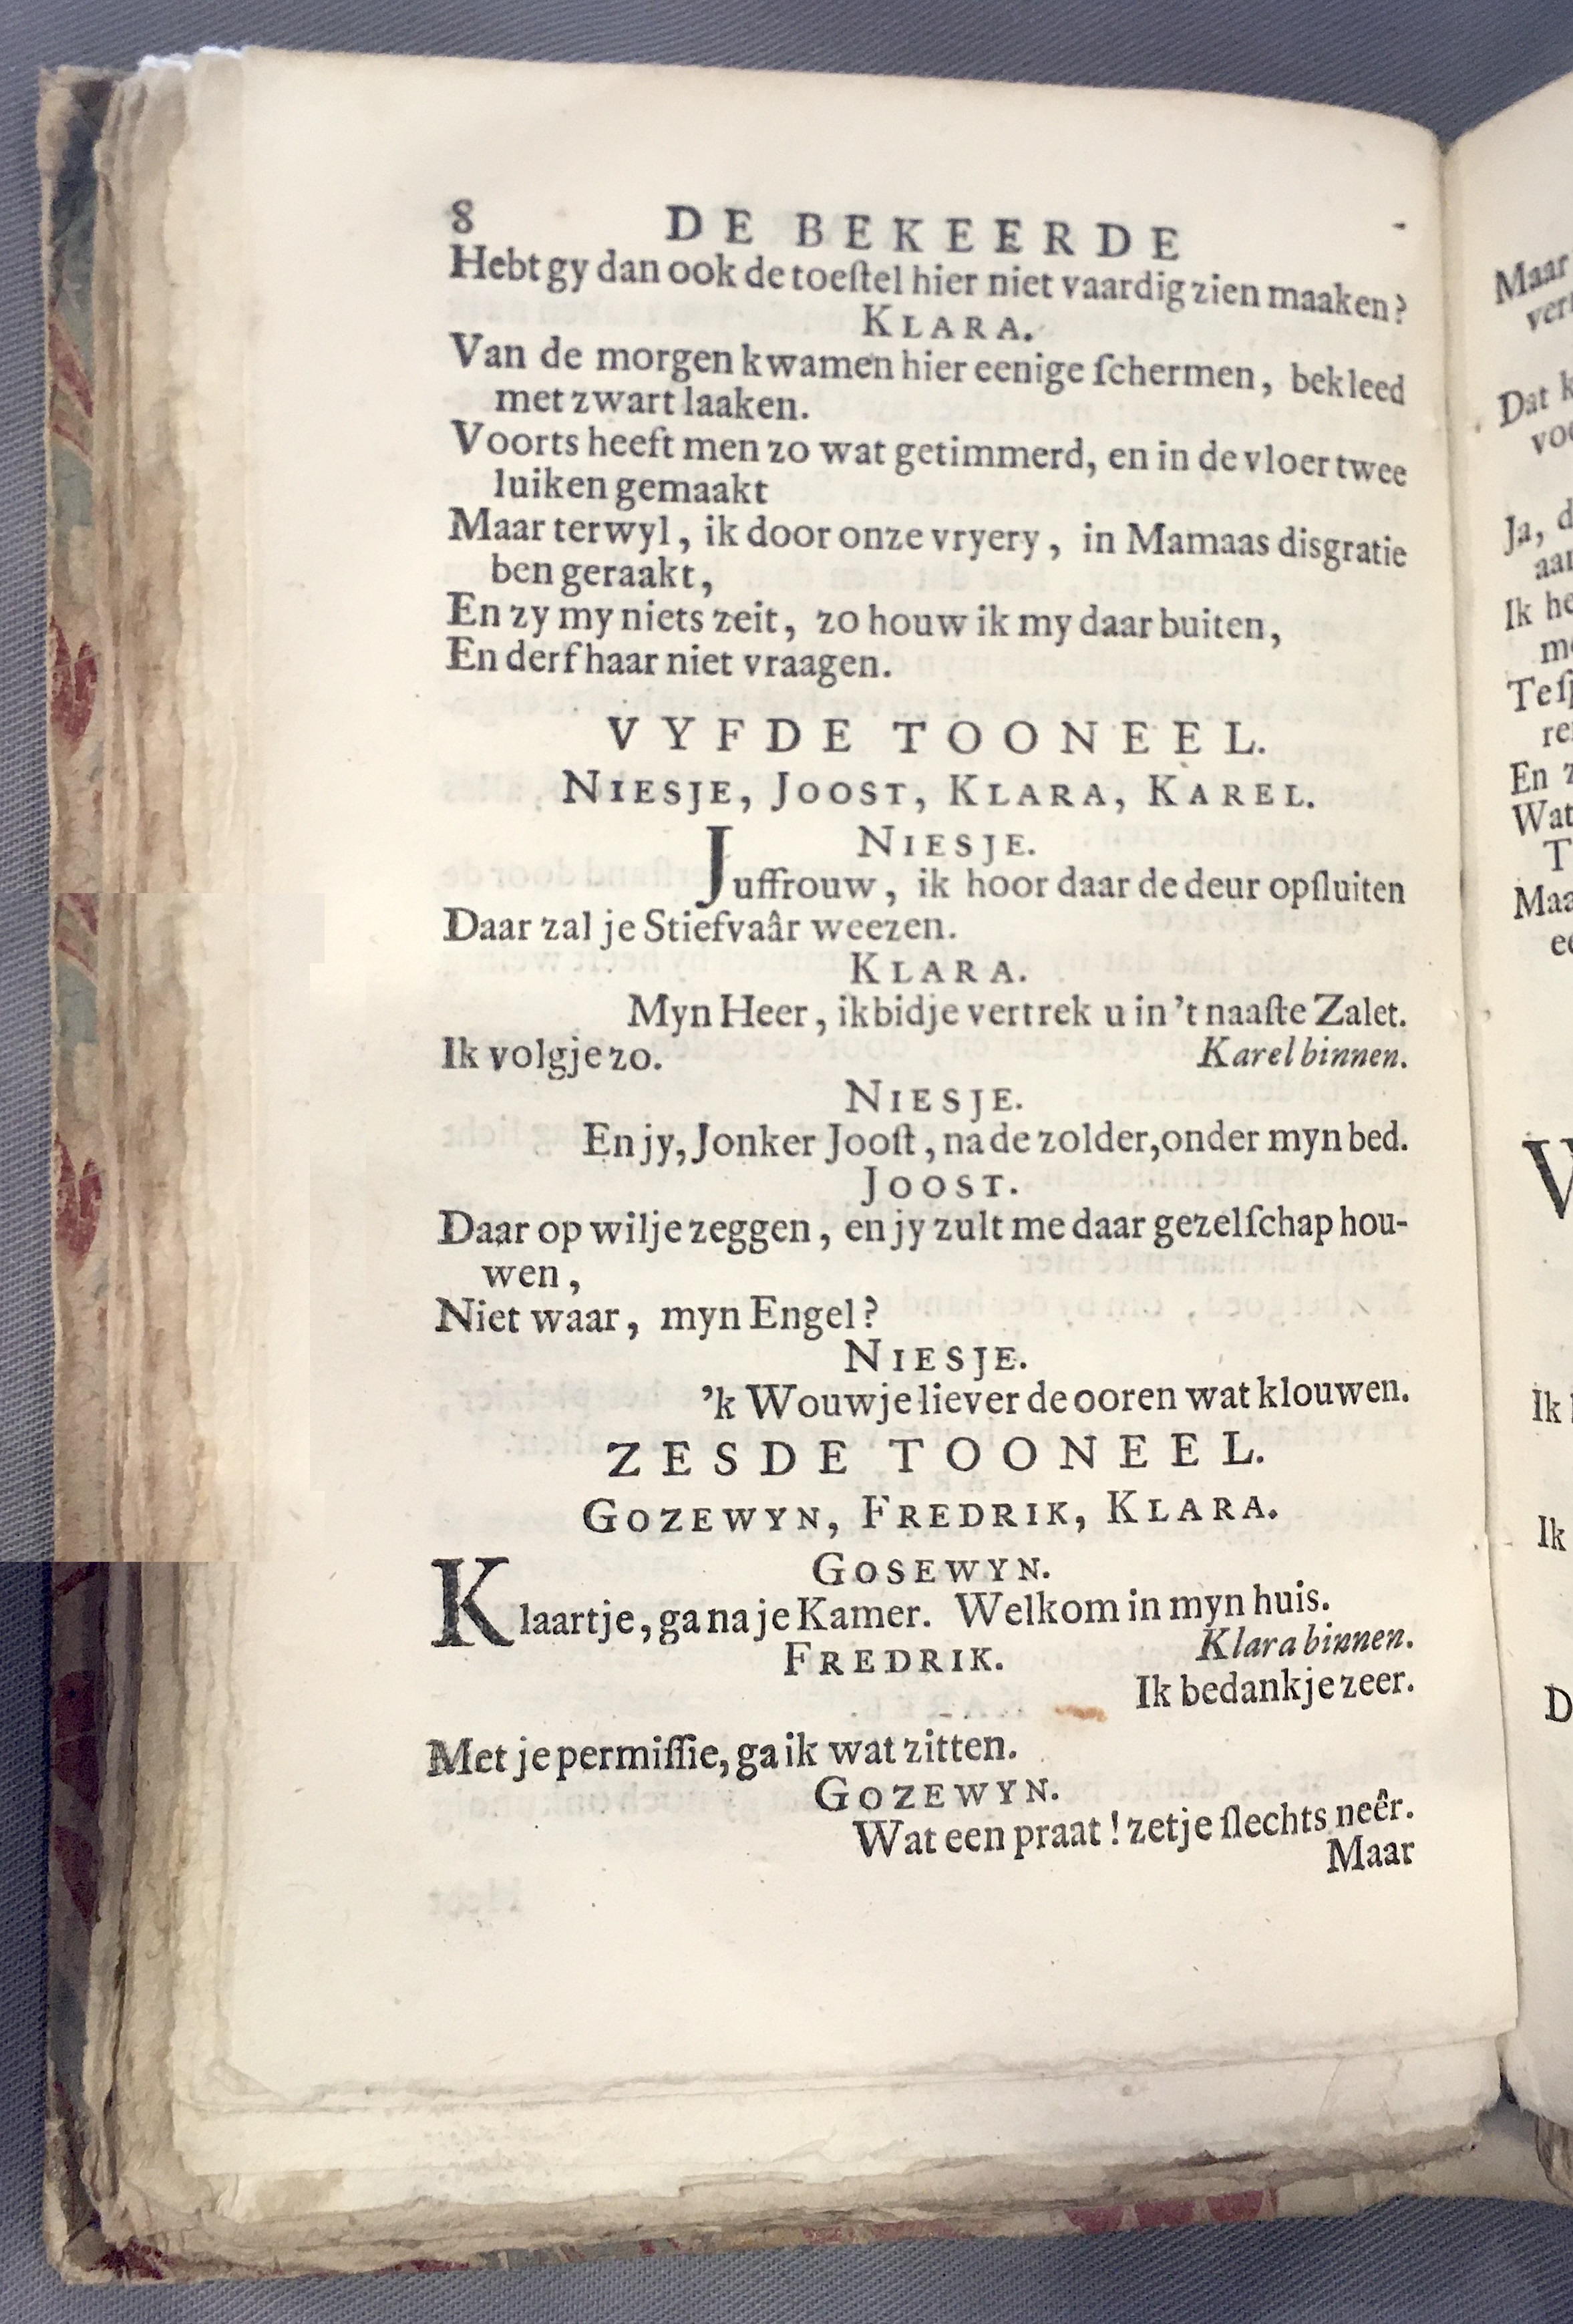 8 DE BEKEERDE
Hebt gy dan ook de toeſtel hier niet vaardig zien maaken?
KLARA.
Van de morgen kwamen hier eenige ſchermen, bekleed
met zwart laaken.
Voorts heeft men zo wat getimmerd, en in de vloer twee
luiken gemaakt
Maar terwyl, ik door onze vryery, in Mamaas disgratie
ben geraakt,
En zy my niets zeit, zo houw ik my daar buiten,
En derf haar niet vraagen.
VYFDE TOONEEL.
NIESJE, JOOST, KLARA, KAREL.
NIESJE.
Juffrouw, ik hoor daar de deur opſluiten
Daar zal je Stiefvaâr weezen.
KLARA.
Myn Heer, ik bidje vertrek u in 't naaſte Zalet.
Ik volgje zo. Karel binnen.
NIESJE.
En jy, Jonker Jooſt, na de zolder, onder myn bed.
JOOST.
Daar op wilje zeggen, en jy zult me daar gezelſchap hou-
wen,
Niet waar, myn Engel?
NIESJE.
'k Wouwje liever de ooren wat klouwen.
ZESDE TOONEEL.
GOZEWYN, FREDRIK, KLARA.
GOSEWYN.
Klaartje, ga na je Kamer. Welkom in myn huis.
Klara binnen.
FREDRIK.
Ik bedankje zeer.
Met je permiſſie, ga ik wat zitten.
GOZEWYN.
Wat een praat! zetje ſlechts neêr.
Maar
Maar
Dat
Ja,
Ik
En
Wat
Ik
Ik